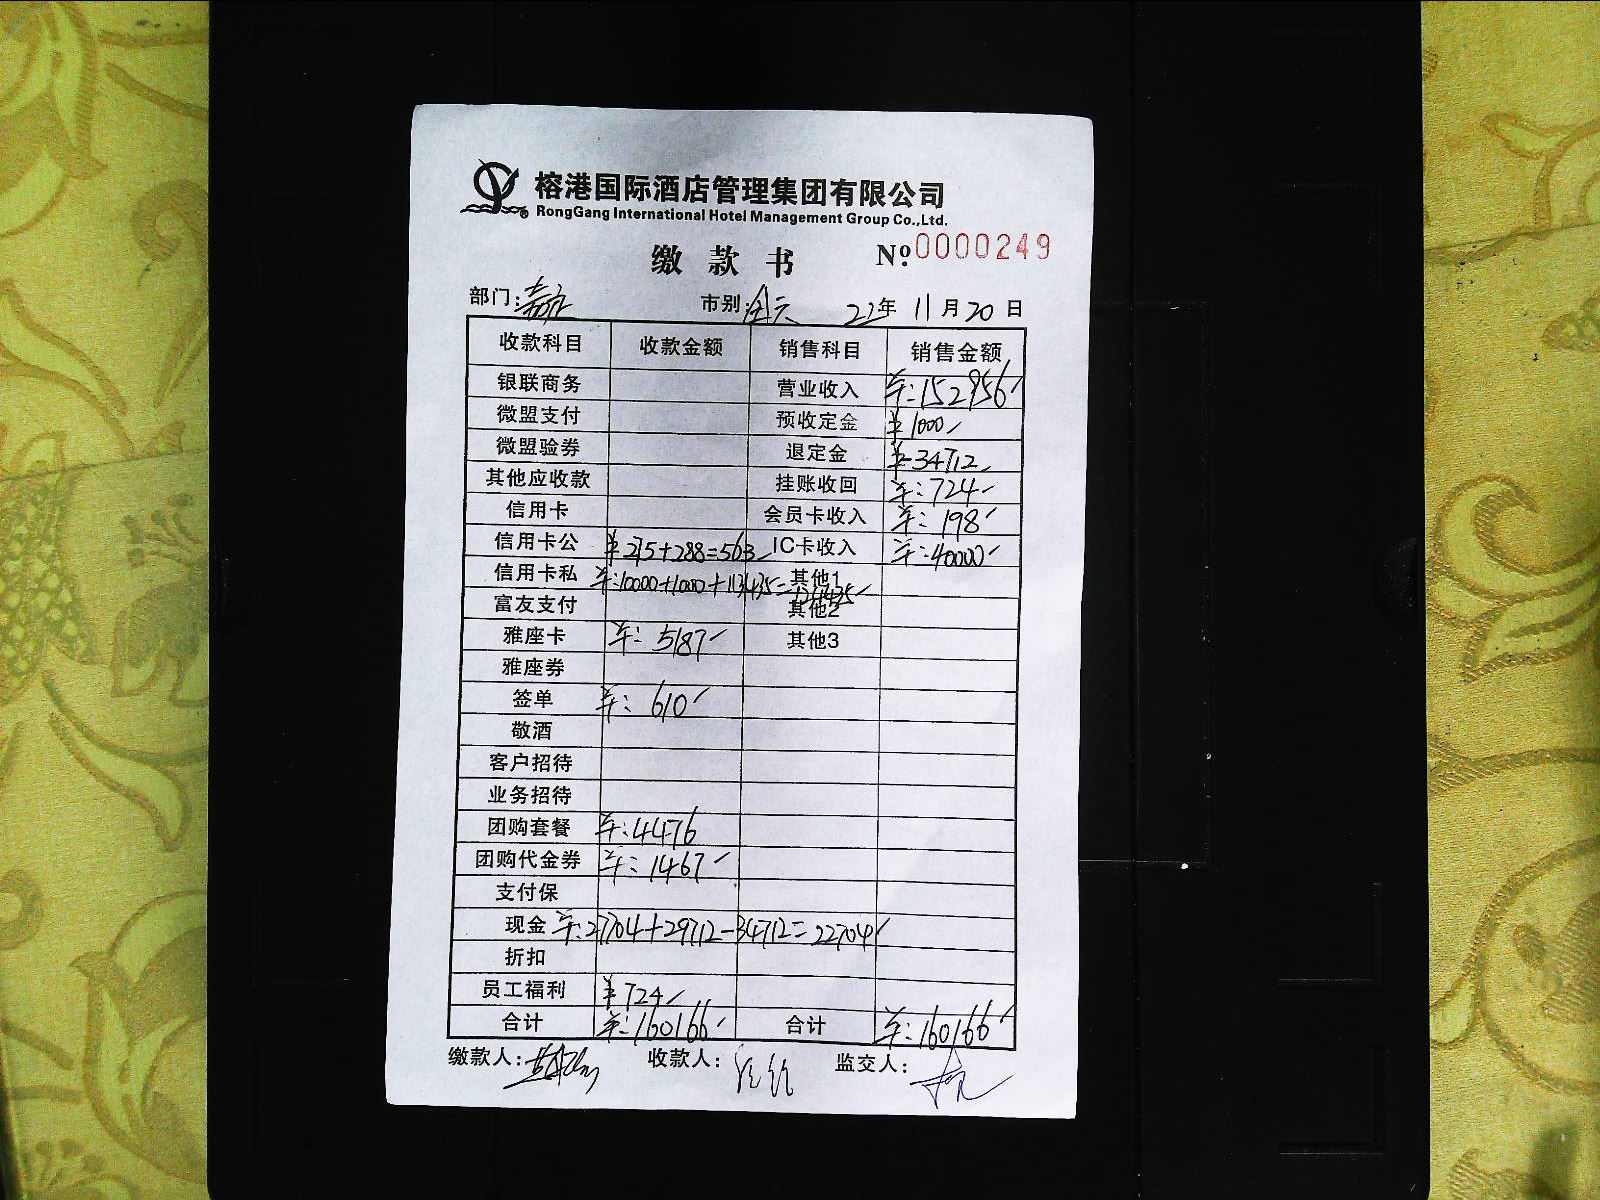 榕港国际酒店管理集团有限公司
RongGang International Hotel Management Group Co.,Ltd.
缴款书 №0000249
部门: 市别:全天 22年11月20日
收款科目 收款金额 销售科目 销售金额
银联商务 营业收入 ¥:152956
微盟支付 预收定金 ¥1000
微盟验券 退定金 ¥-34712
其他应收款 挂账收回 ¥:724
信用卡 会员卡收入 ¥:198
信用卡公 ¥275+288=563 IC卡收入 ¥:40000
信用卡私 ¥:10000+1000+113435=124435 其他1
富友支付 其他2
雅座卡 ¥:5187 其他3
雅座券
签单 ¥:610
敬酒
客户招待
业务招待
团购套餐 ¥:4476
团购代金券 ¥:1467
支付保
现金 ¥:27704+29712-34712=22704
折扣
员工福利 ¥724
合计 ¥:160166 合计 ¥:160166
缴款人: 收款人: 监交人: